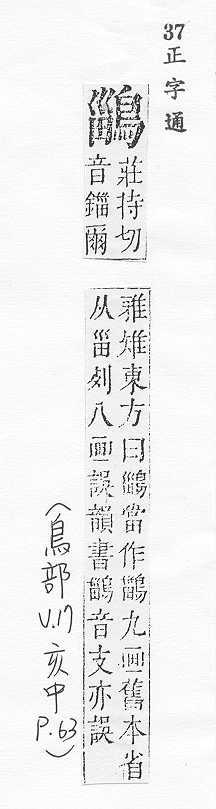 37正字通
鶅
莊持切
音錙爾
雅雉東方曰鶅當作鶅九畫舊本省
从甾列八畫誤韻書鶅音支亦誤
(鳥部 V.17 亥中 P.63)